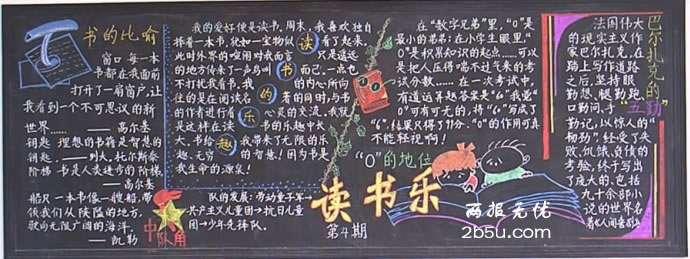 书的比喻
窗口 每一本
书都在我面前
打开了一扇窗户,让
我看到一个不可思议的新
世界……
——高尔基
钥匙 理想的书籍是智慧的
钥匙。——列夫·托尔斯泰
阶梯 书是人类进步的阶梯
——高尔基
船只 一本书像一艘船,带
领我们从狭隘的地方,
驶向无限广阔的海洋。
——凯勒
我的爱好便是读书,周末,我喜欢独自
捧着一本书,犹如一宝物似
看了起来,
此时外界的喧闹对我而言
只是遥远
的地方传来了一声鸟叫
而已,一点也
不打扰我看书,我
的内心所向
往的是在阅读名
著的同时,与书
的作者进行着
心灵的交流,我就
是这样在读
书的乐趣中长
大,书给
我带来了无限的乐
趣、无穷
的智慧!因为书是
我生命的源泉!
读书的乐趣
中队角
队的发展:劳动童子军→
共产主义儿童团→抗日儿童
团→少年先锋队。
在“数字兄弟”里,“0”是
最小的弟弟;在小学生眼里,“
0”是积累知识的起点……可以
是把人压得喘不过气来的考
试分数……在一次考试中,
有道运算题答案是“6”我觉“
0”可有可无的,将“6”写成了
“6.结果只得了11分。“0”的作用可真
不能轻视啊!
“0”的地位
读书乐
第4期
巴尔扎克的
“五勤”
法国伟大
的现实主义作
家巴尔扎克,在
踏上写作道路
之后,坚持眼
勤想,腿勤跑,
口勤问,手
勤记,以惊人的“
韧劲”经受了失
败、饥饿、负债的
考验,终于写出
了庞大的、包括
九十余部小
说的世界名
著《人间喜剧》
两报无忧
2b5u.com